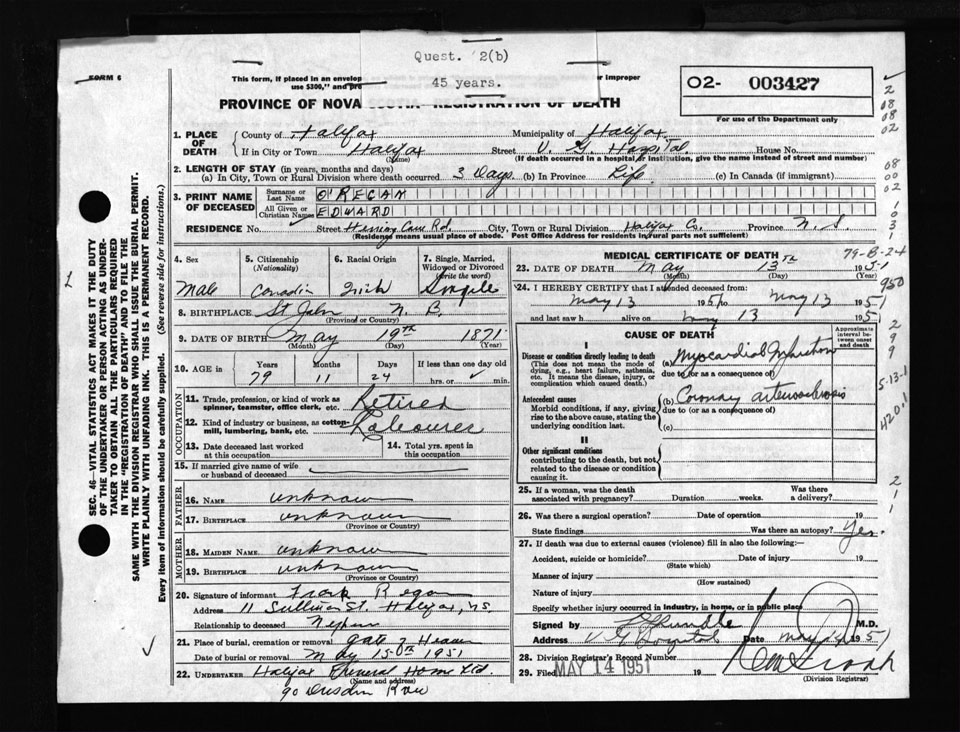 Quest. 2(b)
45 years.
FORM 6
This form, if placed in an envelop
use $300," and pre
r improper
PROVINCE OF NOVA SCOTIA REGISTRATION OF DEATH
02- 003427
For use of the Department only
1. PLACE OF DEATH
County of Halifax Municipality of Halifax
If in City or Town Halifax (Name) Street V. G. Hospital House No.
(If death occurred in a hospital or institution, give the name instead of street and number)
2. LENGTH OF STAY (in years, months and days)
(a) In City, Town or Rural Division where death occurred 3 Days (b) In Province Life (c) In Canada (if immigrant)
3. PRINT NAME OF DECEASED
Surname or Last Name O'REGAN
All Given or Christian Names EDWARD
RESIDENCE No. Street Herring Cove Rd. City, Town or Rural Division Halifax Co. Province N. S.
(Residence means usual place of abode. Post Office Address for residents in rural parts not sufficient)
4. Sex Male
5. Citizenship (Nationality) Canadian
6. Racial Origin Irish
7. Single, Married, Widowed or Divorced (write the word) Single
8. BIRTHPLACE St John N. B. (Province or Country)
9. DATE OF BIRTH May (Month) 19th (Day) 1871 (Year)
10. AGE in Years 79 Months 11 Days 24 If less than one day old hrs. or min.
OCCUPATION
11. Trade, profession, or kind of work as spinner, teamster, office clerk, etc. Retired
12. Kind of industry or business, as cotton-mill, lumbering, bank, etc. Labourer
13. Date deceased last worked at this occupation
14. Total yrs. spent in this occupation
15. If married give name of wife or husband of deceased
FATHER
16. NAME unknown
17. BIRTHPLACE unknown (Province or Country)
MOTHER
18. MAIDEN NAME unknown
19. BIRTHPLACE unknown (Province or Country)
20. Signature of informant Frank Regan
Address 11 Sullivan St. Halifax, N.S.
Relationship to deceased Nephew
21. Place of burial, cremation or removal Gate of Heaven
Date of burial or removal May 15th 1951
22. UNDERTAKER Halifax Funeral Home Ltd. (Name and address)
90 Dresden Row
MEDICAL CERTIFICATE OF DEATH
79-B-24
23. DATE OF DEATH May (Month) 13th (Day) 1951 (Year)
24. I HEREBY CERTIFY that I attended deceased from:
May 13 1951 to May 13 1951
and last saw h alive on May 13 1951
CAUSE OF DEATH
Approximate interval between onset and death
I
Disease or condition directly leading to death
(This does not mean the mode of dying, e.g., heart failure, asthenia, etc. It means the disease, injury, or complication which caused death.)
(a) Myocardial Infarction
due to (or as a consequence of)
Antecedent causes
Morbid conditions, if any, giving rise to the above cause, stating the underlying condition last.
(b) Coronary arteriosclerosis
due to (or as a consequence of)
(c)
II
Other significant conditions
contributing to the death, but not related to the disease or condition causing it.
25. If a woman, was the death associated with pregnancy? Duration weeks. Was there a delivery?
26. Was there a surgical operation? Date of operation 19
State findings Was there an autopsy? Yes.
27. If death was due to external causes (violence) fill in also the following:—
Accident, suicide or homicide? (State which) Date of injury 19
Manner of injury (How sustained)
Nature of injury
Specify whether injury occurred in industry, in home, or in public place
Signed by Rundle M.D.
Address V G Hospital Date May 14 1951
28. Division Registrar's Record Number
29. Filed MAY 14 1951 19
(Division Registrar)
SEC. 46—VITAL STATISTICS ACT MAKES IT THE DUTY OF THE UNDERTAKER OR PERSON ACTING AS UNDERTAKER TO OBTAIN ALL THE PARTICULARS REQUIRED IN THE "REGISTRATION OF DEATH" AND TO FILE THE SAME WITH THE DIVISION REGISTRAR WHO SHALL ISSUE THE BURIAL PERMIT.
WRITE PLAINLY WITH UNFADING INK. THIS IS A PERMANENT RECORD.
Every item of information should be carefully supplied. (See reverse side for instructions.)
2
08
08
02
08
00
02
0
3
1
950
2
9
9
5-13-1
420.1
2
1